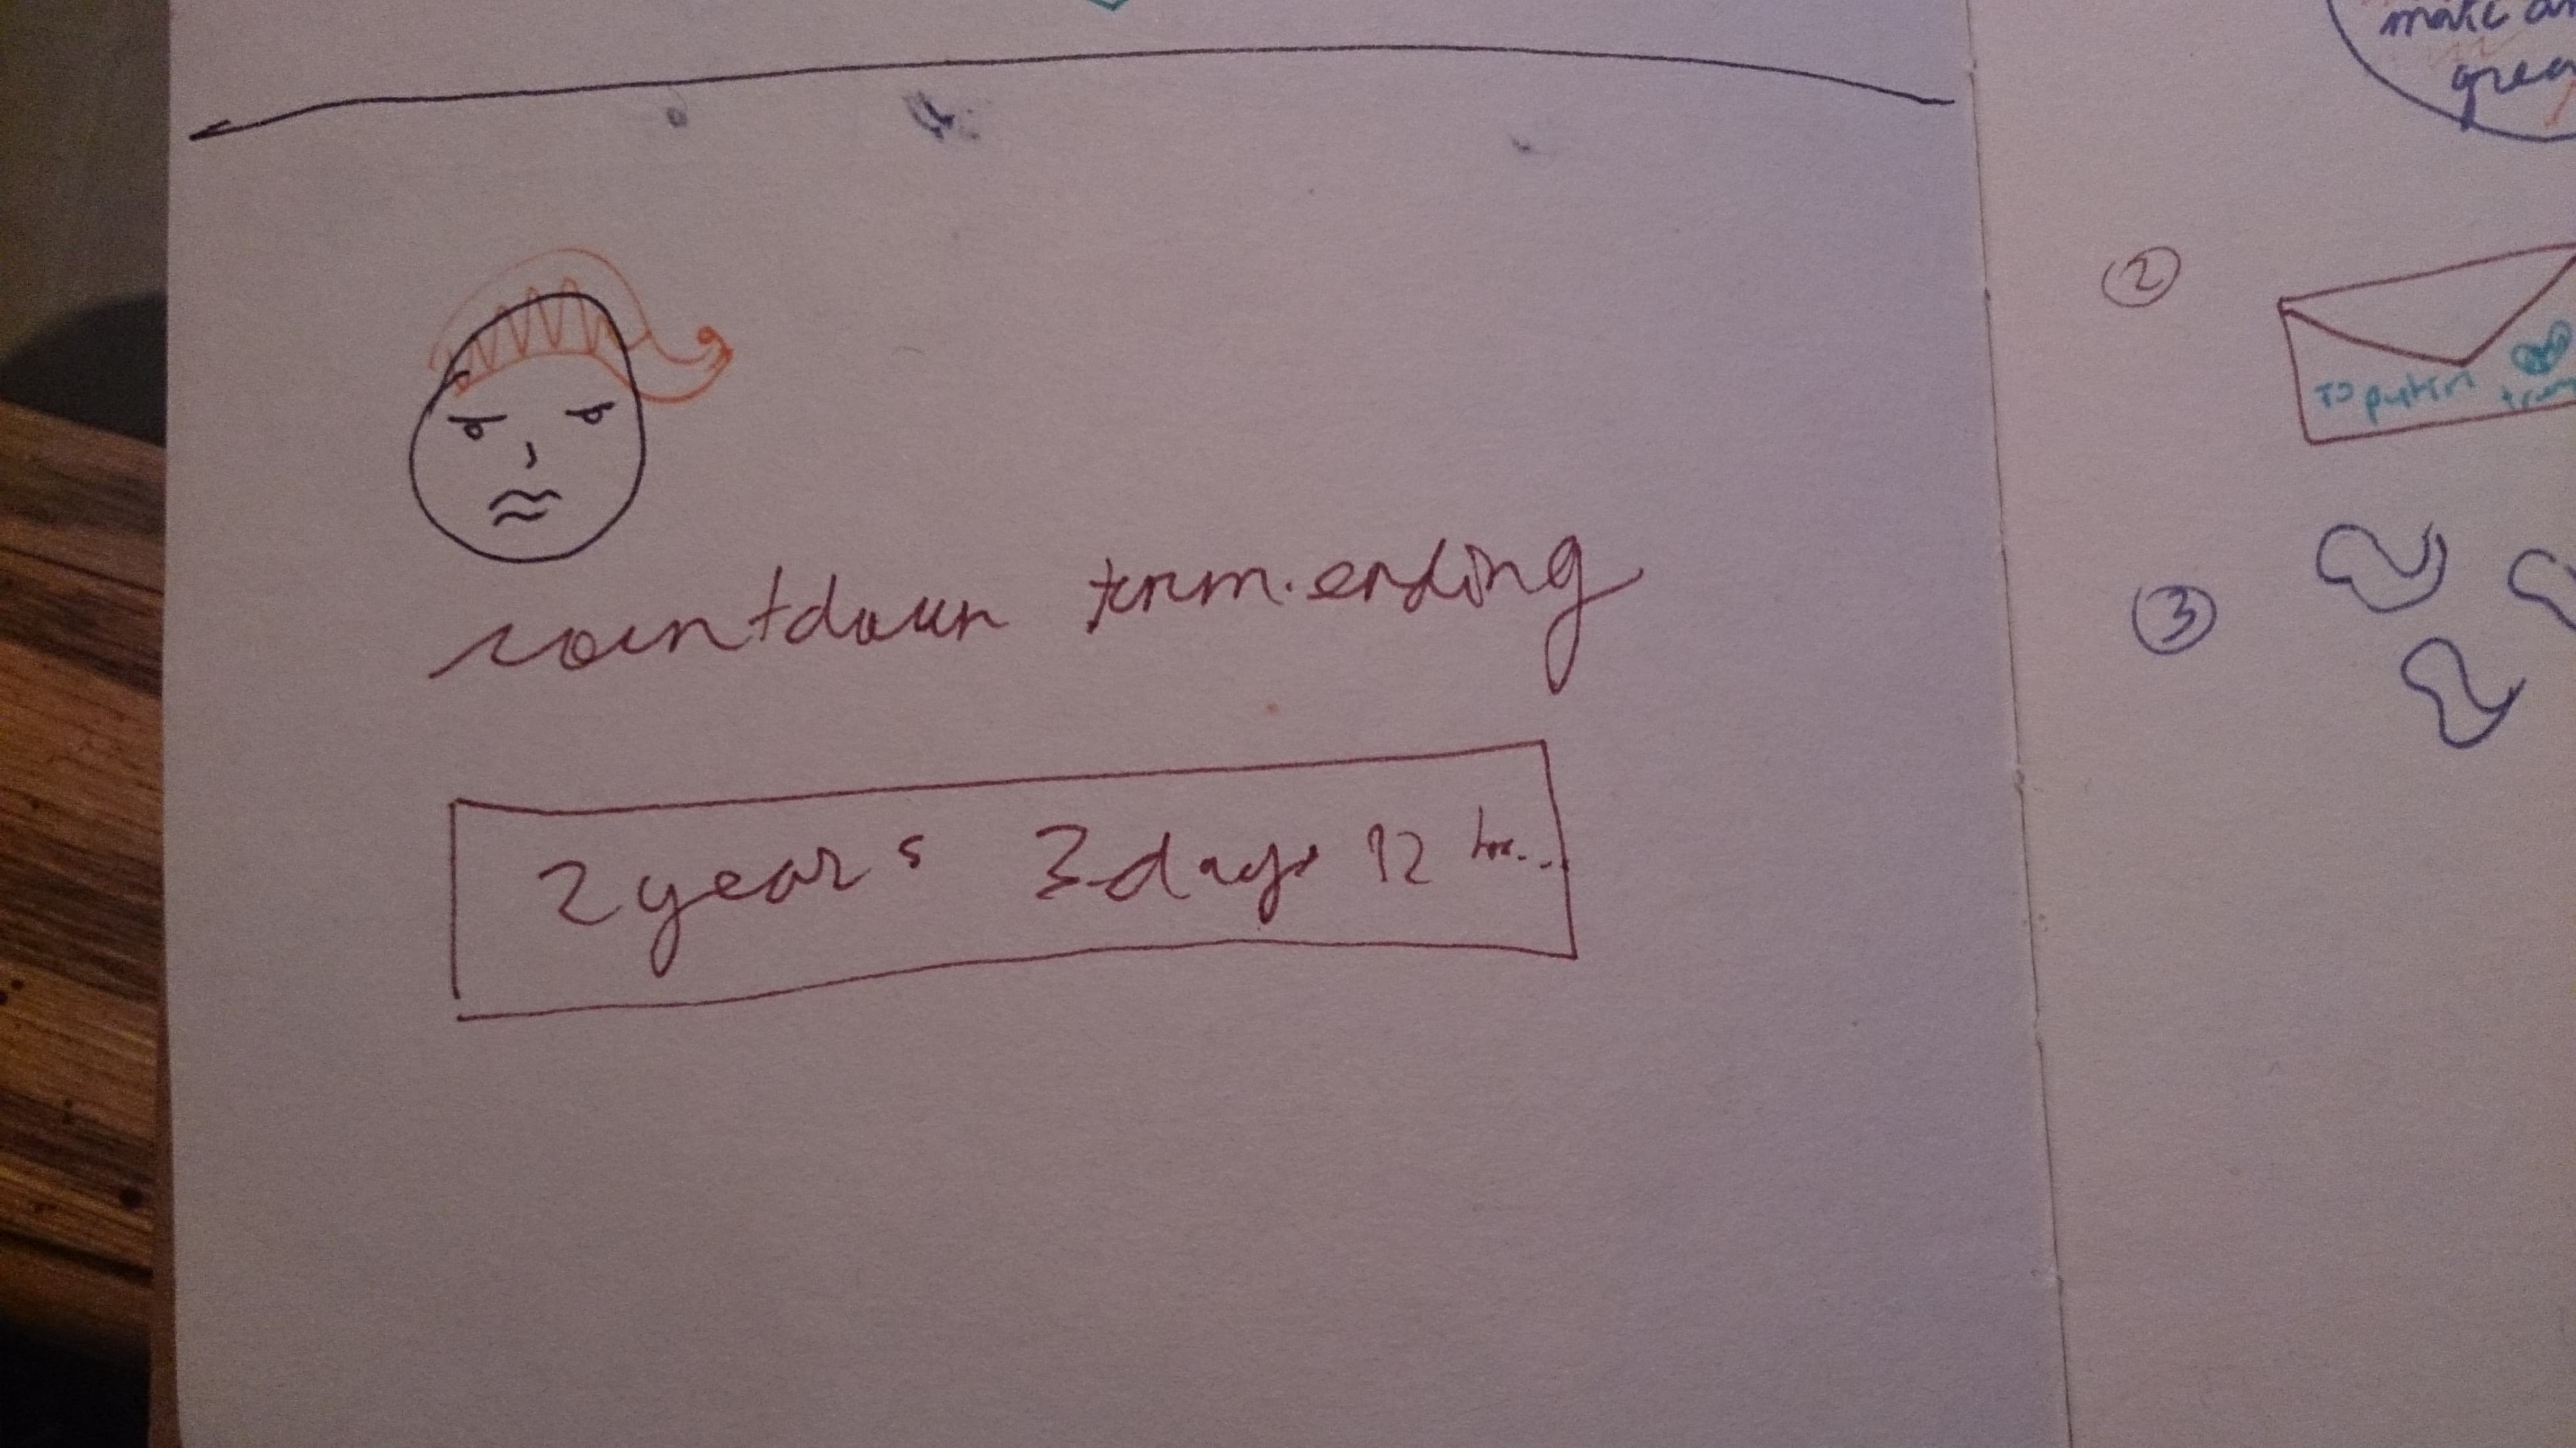 countdown term ending
2 years 3 days 12 hrs...
make
grea
2
To putin
3